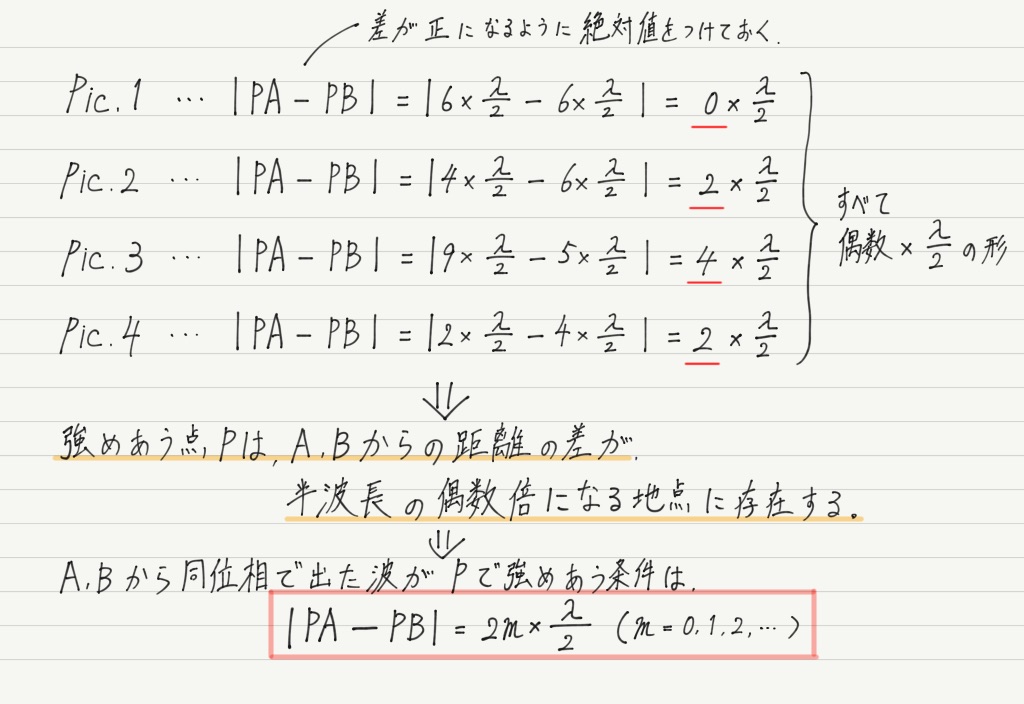 差が正になるように絶対値をつけておく.
Pic.1 … |PA − PB| = |6×λ/2 − 6×λ/2| = 0×λ/2
Pic.2 … |PA − PB| = |4×λ/2 − 6×λ/2| = 2×λ/2
すべて
偶数×λ/2の形
Pic.3 … |PA − PB| = |9×λ/2 − 5×λ/2| = 4×λ/2
Pic.4 … |PA − PB| = |2×λ/2 − 4×λ/2| = 2×λ/2
⇓
強めあう点Pは, A,Bからの距離の差が,
半波長の偶数倍になる地点に存在する。
⇓
A,Bから同位相で出た波がPで強めあう条件は,
|PA − PB| = 2m×λ/2 (m = 0,1,2,…)